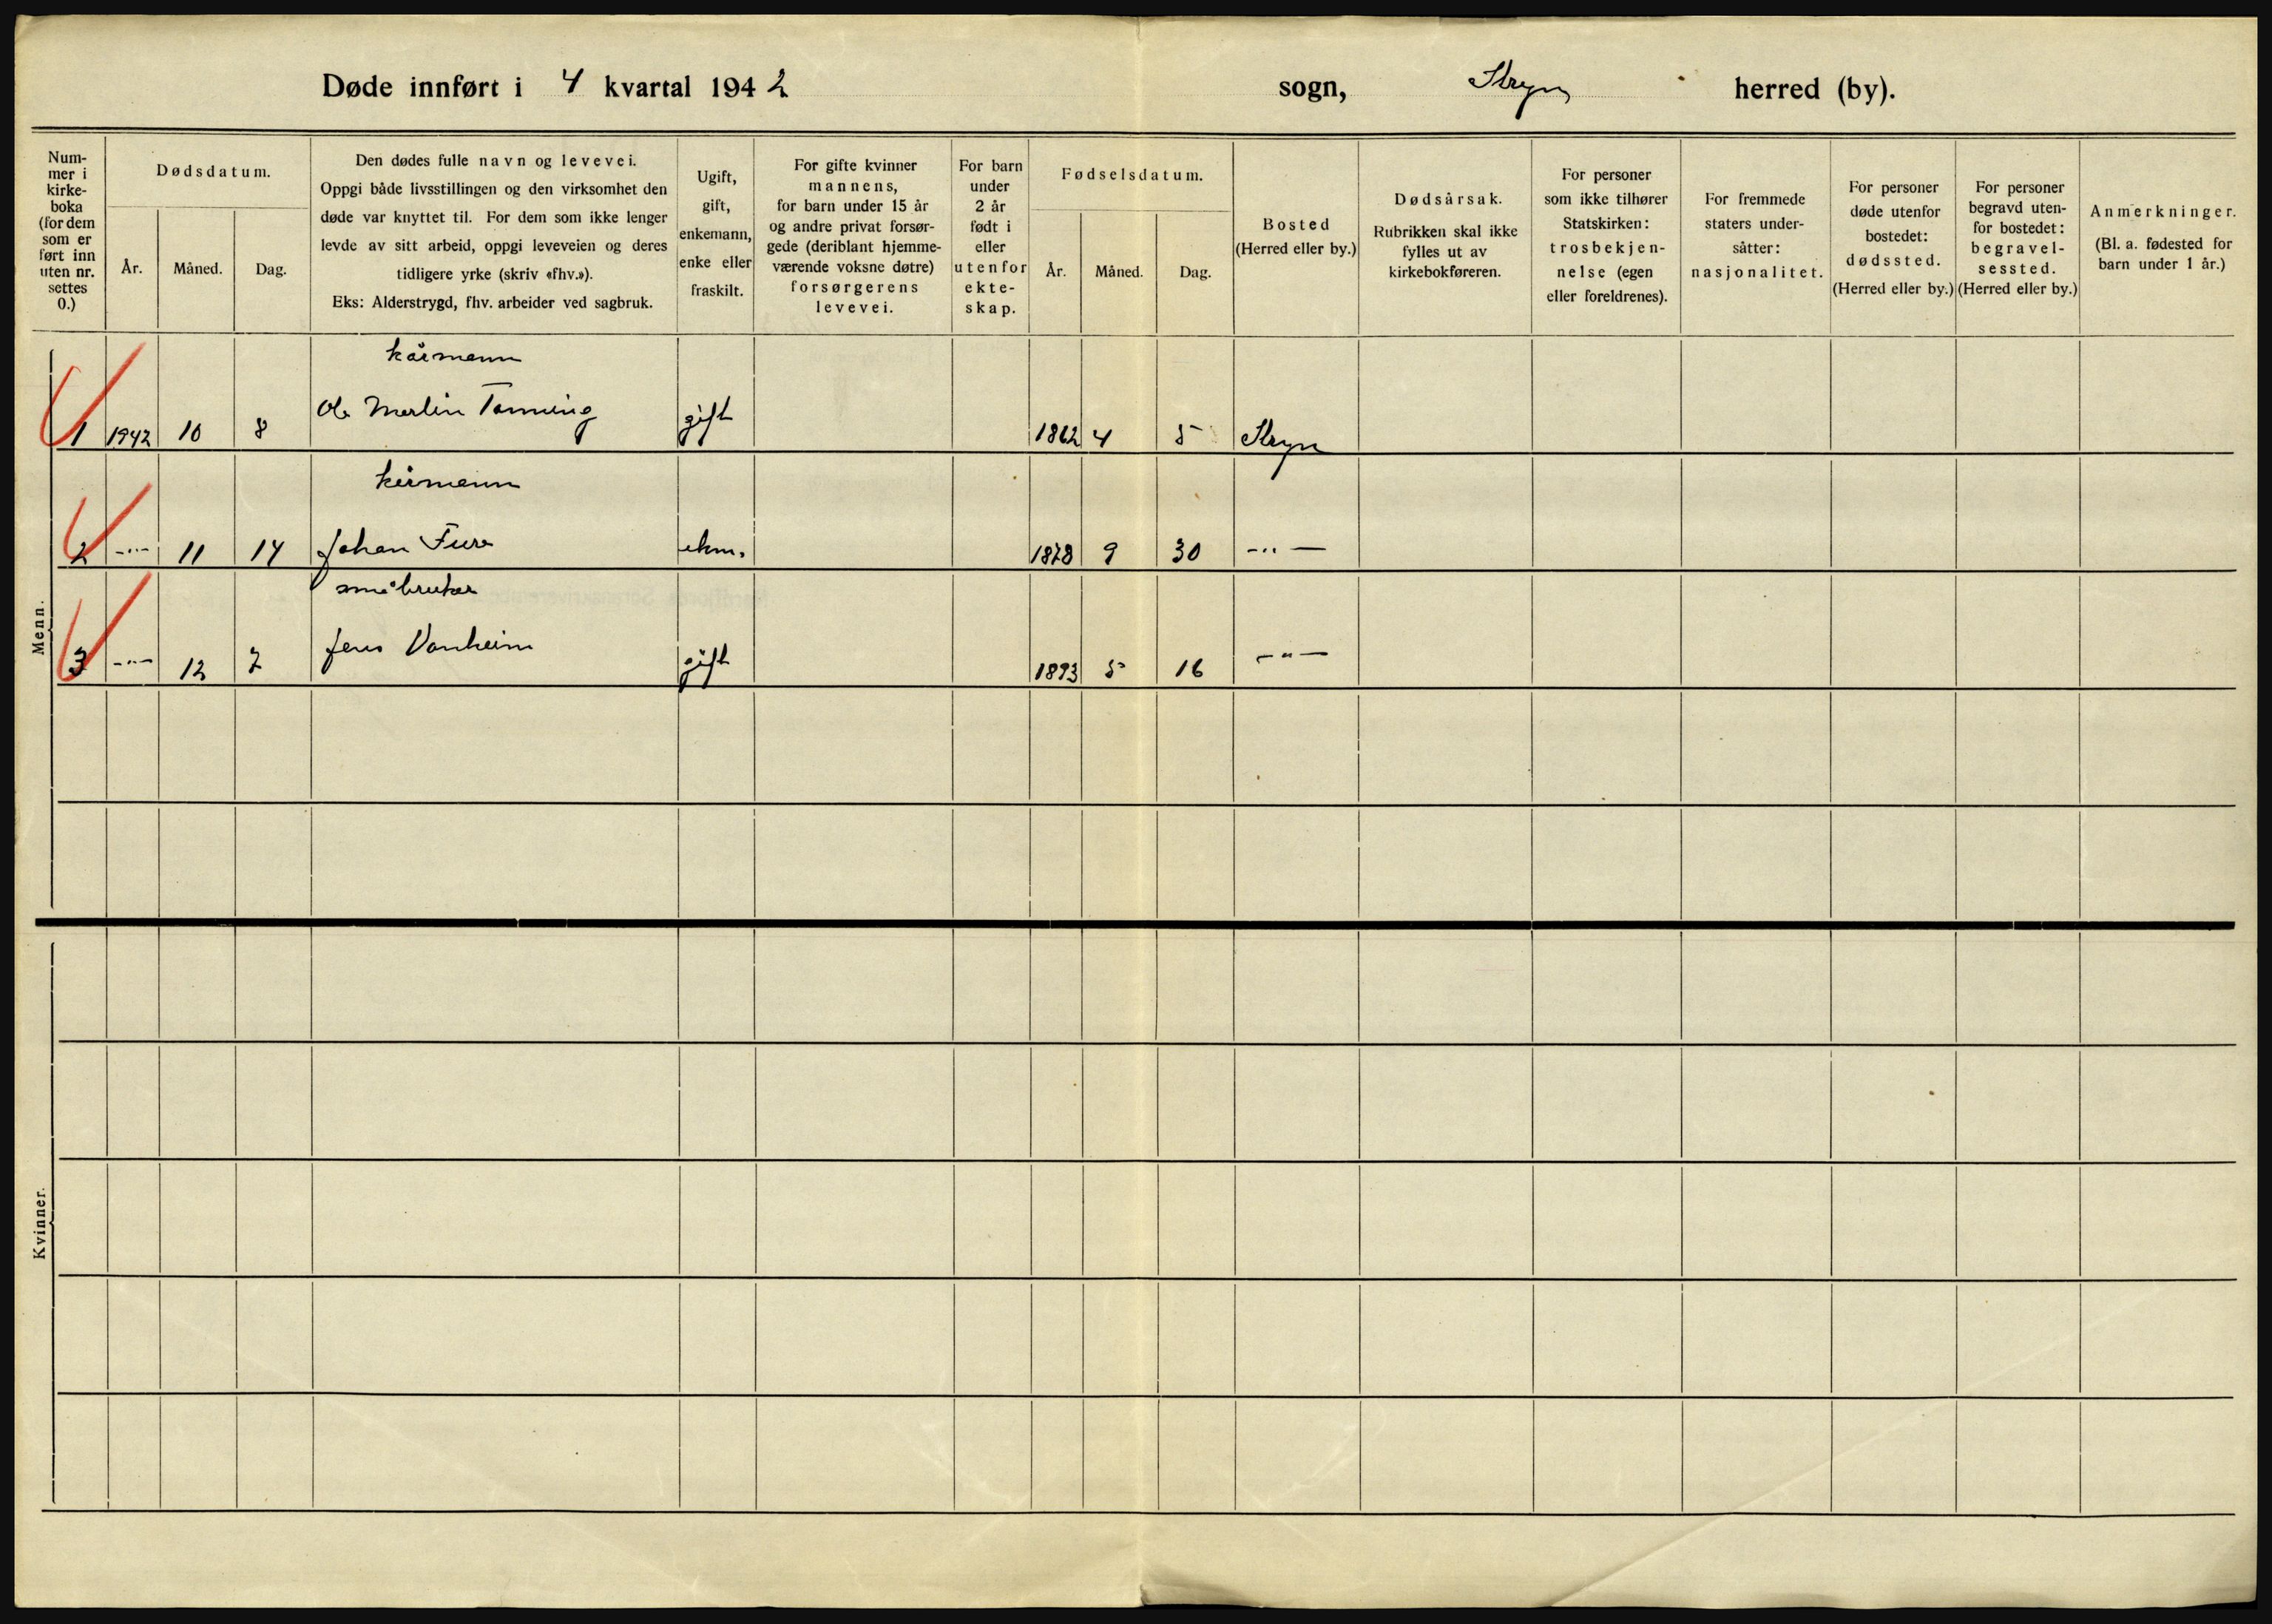 Døde innført i 4 kvartal 1942 sogn, Stryn herred (by).
Num-
mer i
kirke-
boka
(for dem
som er
ført inn
uten nr.
settes
0.)
Dødsdatum.
År. Måned. Dag.
Den dødes fulle navn og levevei.
Oppgi både livsstillingen og den virksomhet den
døde var knyttet til. For dem som ikke lenger
levde av sitt arbeid, oppgi leveveien og deres
tidligere yrke (skriv «fhv.»).
Eks: Alderstrygd, fhv. arbeider ved sagbruk.
Ugift,
gift,
enkemann,
enke eller
fraskilt.
For gifte kvinner
mannens,
for barn under 15 år
og andre privat forsør-
gede (deriblant hjemme-
værende voksne døtre)
forsørgerens
levevei.
For barn
under
2 år
født i
eller
utenfor
ekte-
skap.
Fødselsdatum.
År. Måned. Dag.
Bosted
(Herred eller by.)
Dødsårsak.
Rubrikken skal ikke
fylles ut av
kirkebokføreren.
For personer
som ikke tilhører
Statskirken:
trosbekjen-
nelse (egen
eller foreldrenes).
For fremmede
staters under-
såtter:
nasjonalitet.
For personer
døde utenfor
bostedet:
dødssted.
(Herred eller by.)
For personer
begravd uten-
for bostedet:
begravel-
sessted.
(Herred eller by.)
Anmerkninger.
(Bl. a. fødested for
barn under 1 år.)
Menn.
kårmann
1 1942 10 8 Ole Martin Tonning gift 1862 4 5 Stryn
kårmann
2 -"- 11 14 Johan Fure ekm. 1878 9 30 -"-
småbruker
3 -"- 12 7 Jens Vonheim gift 1893 5 16 -"-
Kvinner.